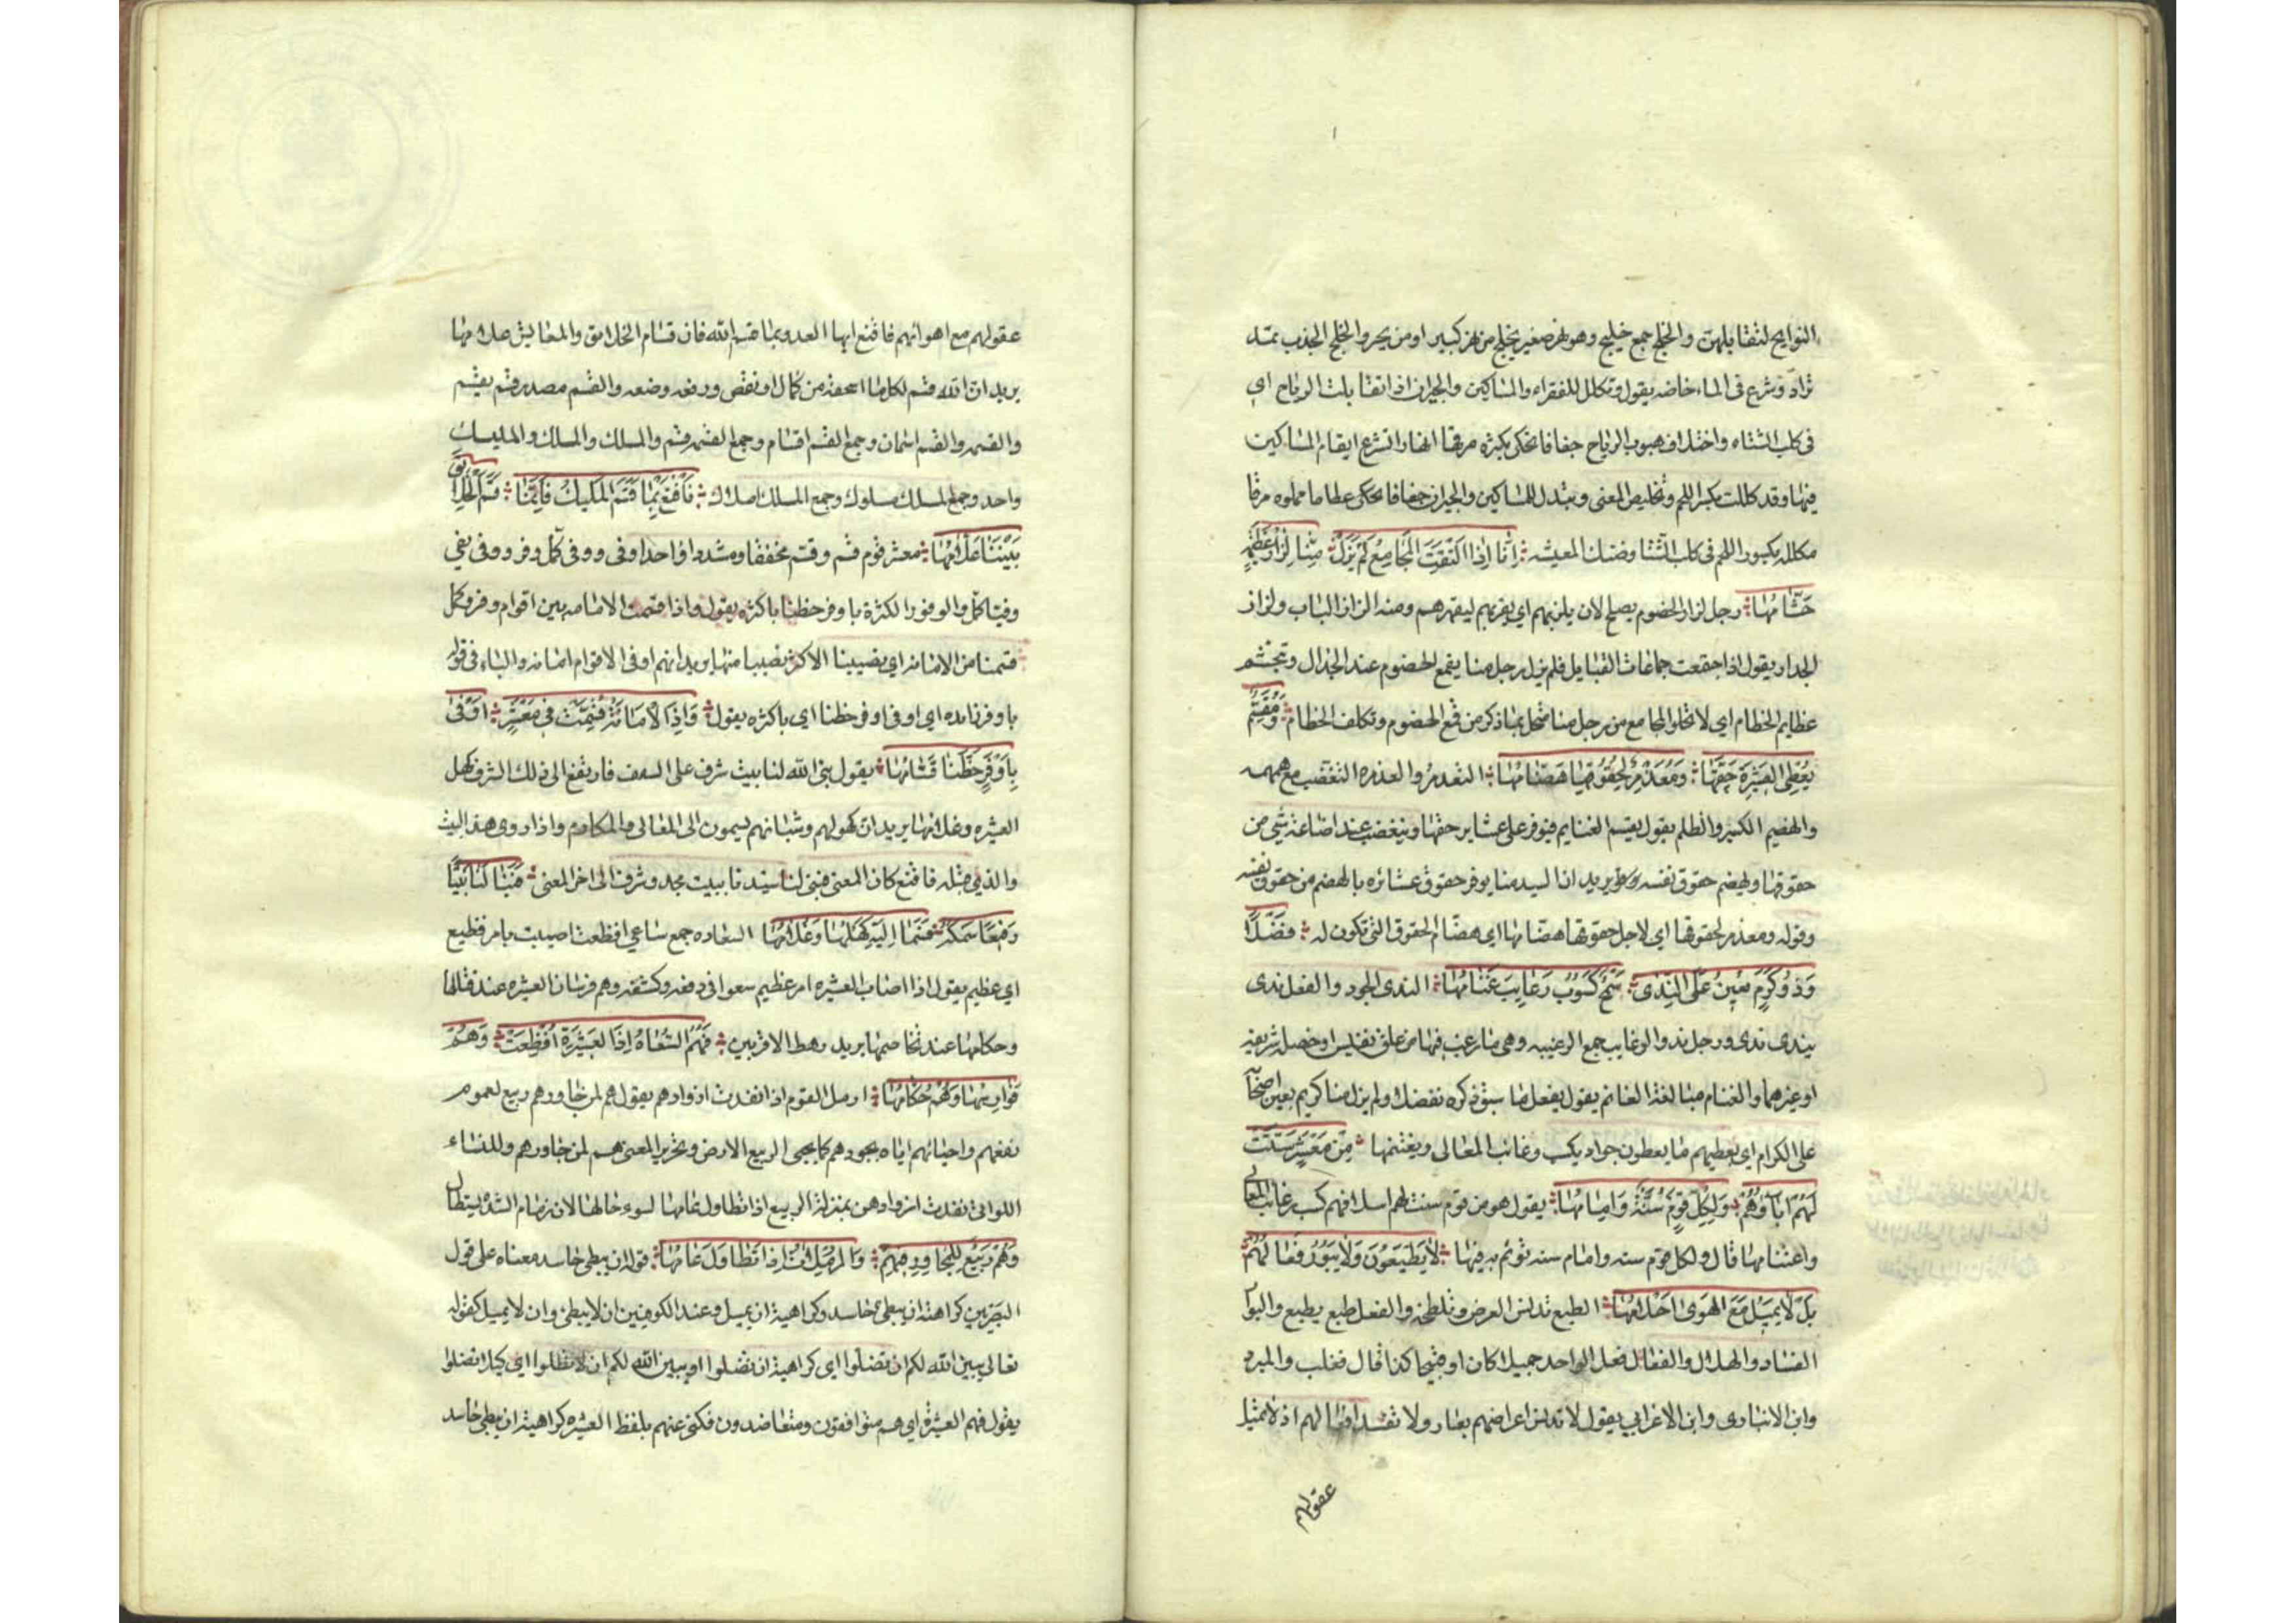 النوايح لتقابلهن والخلج جمع خليج وهو نهر صغير يخلج من نهر كبير او من بحر والخلج الجذب تمد
تزاد وشرع في الماء خاضه يقول وتكلل للفقراء والمساكين والجيران اذا تقابلت الرياح اي
في كلب الشتاء واختلاف هبوب الرياح جفانا تحكى بكثرة مرقها انهارا تشرع ايتام المساكين
فيها وقد كللت بكسر اللحم وتلخيص المعنى ونبذل للمساكين والجيران جفانا تحكى عظاما مملوه مرقا
مكلله بكسور اللحم في كلب الشتا وضنك المعيشه اِنّا اِذا الْتَقَتِ المَجَامِعُ لَمْ يَزَلْ مِنَّا لِزَازُ عَظِيْمَةٍ
جَشَّامُهَا رجل لزاز الخصوم يصلح لان يلز بهم اي يقرن بهم ليقهرهم ومنه لزاز الباب ولزاز
الجدار يقول اذا اجتمعت جماعات القبايل فلم يزل رجل منا يقمع الخصوم عند الجدال ويتجشم
عظايم الخطام اي لا تخلو المجامع من رجل منا متحل بما ذكر من قمع الخصوم وتكلف الخطام وَمُقَسِّمٌ
يُعْطِي العَشِيْرَةَ حَقَّهَا وَمُغَذْمِرٌ لِحُقُوقِهَا هَضَّامُهَا التغذمر والغذمره التغضب مع همهمه
والهضيم الكسر والظلم يقول يقسم الغنايم فيوفر على عشاير حقها ويتغضب عند اضاعة شي من
حقوقها ويهضم حقوق نفسه يريد ان السيد منا يوفر حقوق عشائره بالهضم من حقوق نفسه
وقوله ومغذمر لحقوقها اي لاجل حقوقها هضامها اي هضام الحقوق التي تكون له فَضْلًا
وَذُو كَرَمٍ يُعِيْنُ عَلَى النَّدَى سَمْحٌ كَسُوْبُ رَغَايِبَ غَنَّامُهَا الندى الجود والفعل ندى
يندى ندى ورجل ند والرغايب جمع الرغيبه وهي ما رغب فيها من علق نفيس او خصلة شريفة
او غيرهما والغنام مبالغة الغانم يقول يفعل ما سبق ذكره تفضلا ولم يزل منا كريم يعين اصحابه
على الكرام اي يعطيهم ما يعطون جواد يكسب رغائب المعالي ويغتنمها مِنْ مَعْشَرٍ سَنَّتْ
لَهُمْ آبَاؤُهُمْ وَلِكُلِّ قَوْمٍ سُنَّةٌ وَاِمَامُهَا يقول هو من قوم سنت لهم اسلافهم كسب رغائب المعالي
واغتنامها قال ولكل قوم سنه وامام سنه يؤتم به فيها لَا يَطْبَعُوْنَ وَلَا يَبُوْرُ فَعَالُهُمْ
بَلْ لَا يَمِيْلُ مَعَ الهَوَى اَحْلَامُهَا الطبع تدنس العرض وتلطخه والفعل طبع يطبع والبوار
الفساد والهلاك والفعال فعل الواحد جميلا كان او قبيحا كذا قال ثعلب والمبرد
وابن الانباري وابن الاعرابي يقول لا تدنس اعراضهم بعار ولا تفسد افعالهم اذ لا تميل
عقولهم
عقولهم مع اهوائهم فاقنع ايها العدو بما قسم الله فان قسام الخلائق والمعايش علامها
يريد ان الله قسم لكل ما استحقه من كمال او نقص ورفعه وضعه والقسم مصدر قسم يقسم
والقسم والقسم اسمان وجمع القسم اقسام وجمع القسمه قسم والملك والملك والمليك
واحد وجمع الملك ملوك وجمع الملك املاك فَاقْنَعْ بِمَا قَسَمَ المَلِيْكُ فَاِنَّمَا قَسَمَ الخَلَائِقَ
بَيْنَنَا عَلَّامُهَا معشر قوم قسم وقسم مخففا ومشددا واحد اوفى ووفى كمل وفر ووفى يفي
وفيا كمل والوفور الكثرة باوفر حظنا باكثره يقول واذا قسمت الامانه بين اقوام وفر وكمل
قسمنا من الامانه اي نصيبنا الاكثر نصيبا منها يريد انهم اوفى الاقوام امانه والباء في قوله
باوفر زايده اي اوفى اوفر حظنا اي باكثره يقول وَاِذَا الْاَمَانَةُ قُسِّمَتْ فِي مَعْشَرٍ اَوْفَى
بِاَوْفَرِ حَظِّنَا قَسَّامُهَا يقول بنى الله لنا بيت شرف على السقف فارتفع الى ذلك الشرف كهل
العشيره وغلامها يريد ان كهولهم وشبانهم يسمون الى المعالي والمكارم واذا روى هذا البيت
والذي قبله فاقنع كان المعنى فبنى لنا سيدنا بيت مجد وشرف الى اخر المعنى فَبَنَا لَنَا بَيْتًا
رَفِيْعًا سَمْكُهُ فَسَمَا اِلَيْهِ كَهْلُهَا وَغُلَامُهَا السعاده جمع ساعي افظعت اصيبت بامر فظيع
اي عظيم يقول اذا اصاب العشيره امر عظيم سعوا في دفعه وكشفه وهم فرسان العشيره عند قتالها
وحكامها عند تخاصمها يريد رهط الاقربين فَهُمُ السُّعَاةُ اِذَا العَشِيْرَةُ اُفْظِعَتْ وَهُمُ
فَوَارِسُهَا وَهُمْ حُكَّامُهَا ارمل القوم اذا نفدت ازوادهم يقول هم لمن جاورهم ربيع لعموم
نفعهم واحيائهم اياه بجودهم كما يحيى الربيع الارض وتحرير المعنى هم لمن جاورهم وللنساء
اللواتي نفدت ازوادهن بمنزلة الربيع اذا تطاول عامها لسوء حالها لان زمام الشدة يستطال
وَهُمُ رَبِيْعٌ لِلْمُجَاوِرِ فِيْهِمُ وَالمُرْمِلَاتُ اِذَا تَطَاوَلَ عَامُهَا قوله ان يبطي حاسد معناه على قول
البصريين كراهة ان يبطي حاسد وكراهية ان يميل وعند الكوفيين ان لا يبطئ وان لا يميل كقوله
تعالى يبين الله لكم ان تضلوا اي كراهية ان تضلوا او يبين الله لكم ان لا تضلوا اي كيلا تضلوا
يقول فهم العشيرة اي هم متوافقون ومتعاضدون فكنى عنهم بلفظ العشيره كراهية ان يبطي حاسد